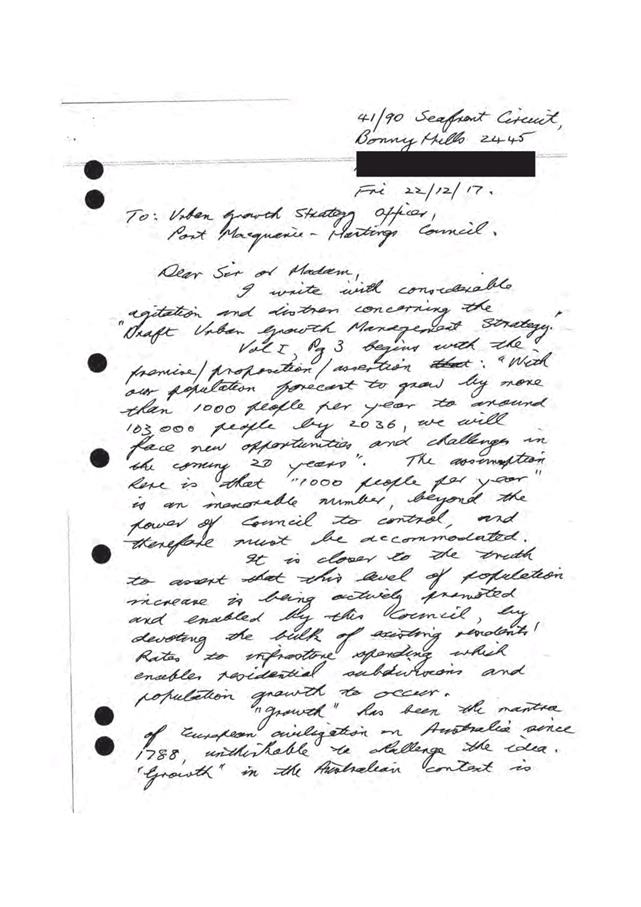 41/90 Seafront Circuit,
Bonny Hills 2445
Fri 22/12/17.
To: Urban Growth Strategy Officer,
Port Macquarie - Hastings Council.
Dear Sir or Madam,
I write with considerable
agitation and distress concerning the
"Draft Urban Growth Management Strategy."
Vol I, Pg 3 begins with the
premise/proposition/assertion that: "With
our population forecast to grow by more
than 1000 people per year to around
103,000 people by 2036, we will
face new opportunities and challenges in
the coming 20 years". The assumption
here is that "1000 people per year"
is an inexorable number, beyond the
power of Council to control, and
therefore must be accommodated.
It is closer to the truth
to assert that this level of population
increase is being actively promoted
and enabled by this Council, by
devoting the bulk of existing residents'
Rates to infrastructure spending which
enables residential subdivisions and
population growth to occur.
"Growth" has been the mantra
of European civilization in Australia since
1788, unthinkable to challenge the idea.
"Growth" in the Australian context is